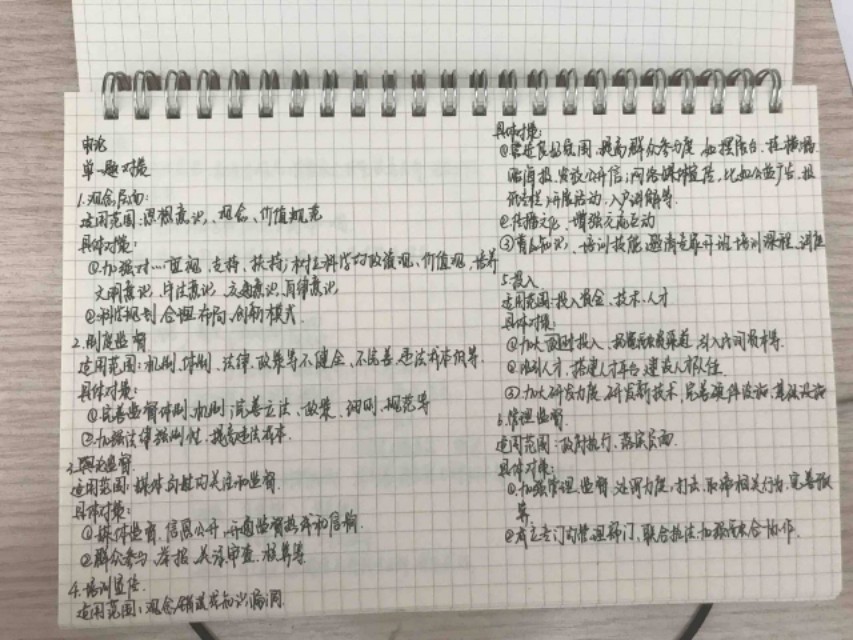 申论
单一题对策
1.观念层面:
适用范围:思想意识、观念、价值规范
具体对策:
①加强对…重视、支持、扶持;树立科学的政绩观、价值观,培养
文明意识、守法意识、交通意识、自律意识
②科学规划 合理布局、创新模式.
2.制度监督
适用范围:机制、体制、法律、政策等不健全、不完善、违法成本低等.
具体对策:
①完善监督体制、机制,完善立法、政策、细则、规范等
②加强法律强制性,提高违法成本.
3.舆论监督.
适用范围:媒体与群众的关注和监督.
具体对策:
①媒体监督、信息公开,开通监督热线和信箱.
②群众参与、举报、关注、审查、核算等.
4.培训宣传.
适用范围:观念错误或知识漏洞.
具体对策:
①营造良好氛围,提高群众参与度,如摆展台、挂横幅
贴海报、发放公开信;网络媒体宣传,比如公益广告、投
开展活动、入户讲解等.
②传播文化,增强交流互动
③普及知识、培训技能,邀请专家开班培训课程、
5.投入
适用范围:投入资金、技术、人才
具体对策:
①加大财政投入、拓宽融资渠道,引入民间资本等.
②吸引人才,搭建人才平台,建设人才队伍.
③加大研发力度,研发新技术,完善硬件设施、基础设施
6.管理监督.
适用范围:政府执行、落实层面.
具体对策:
①加强管理、监督、处罚力度,打击、取缔相关行为,完善
等.
②成立专门的管理部门,联合执法,加强合协作.